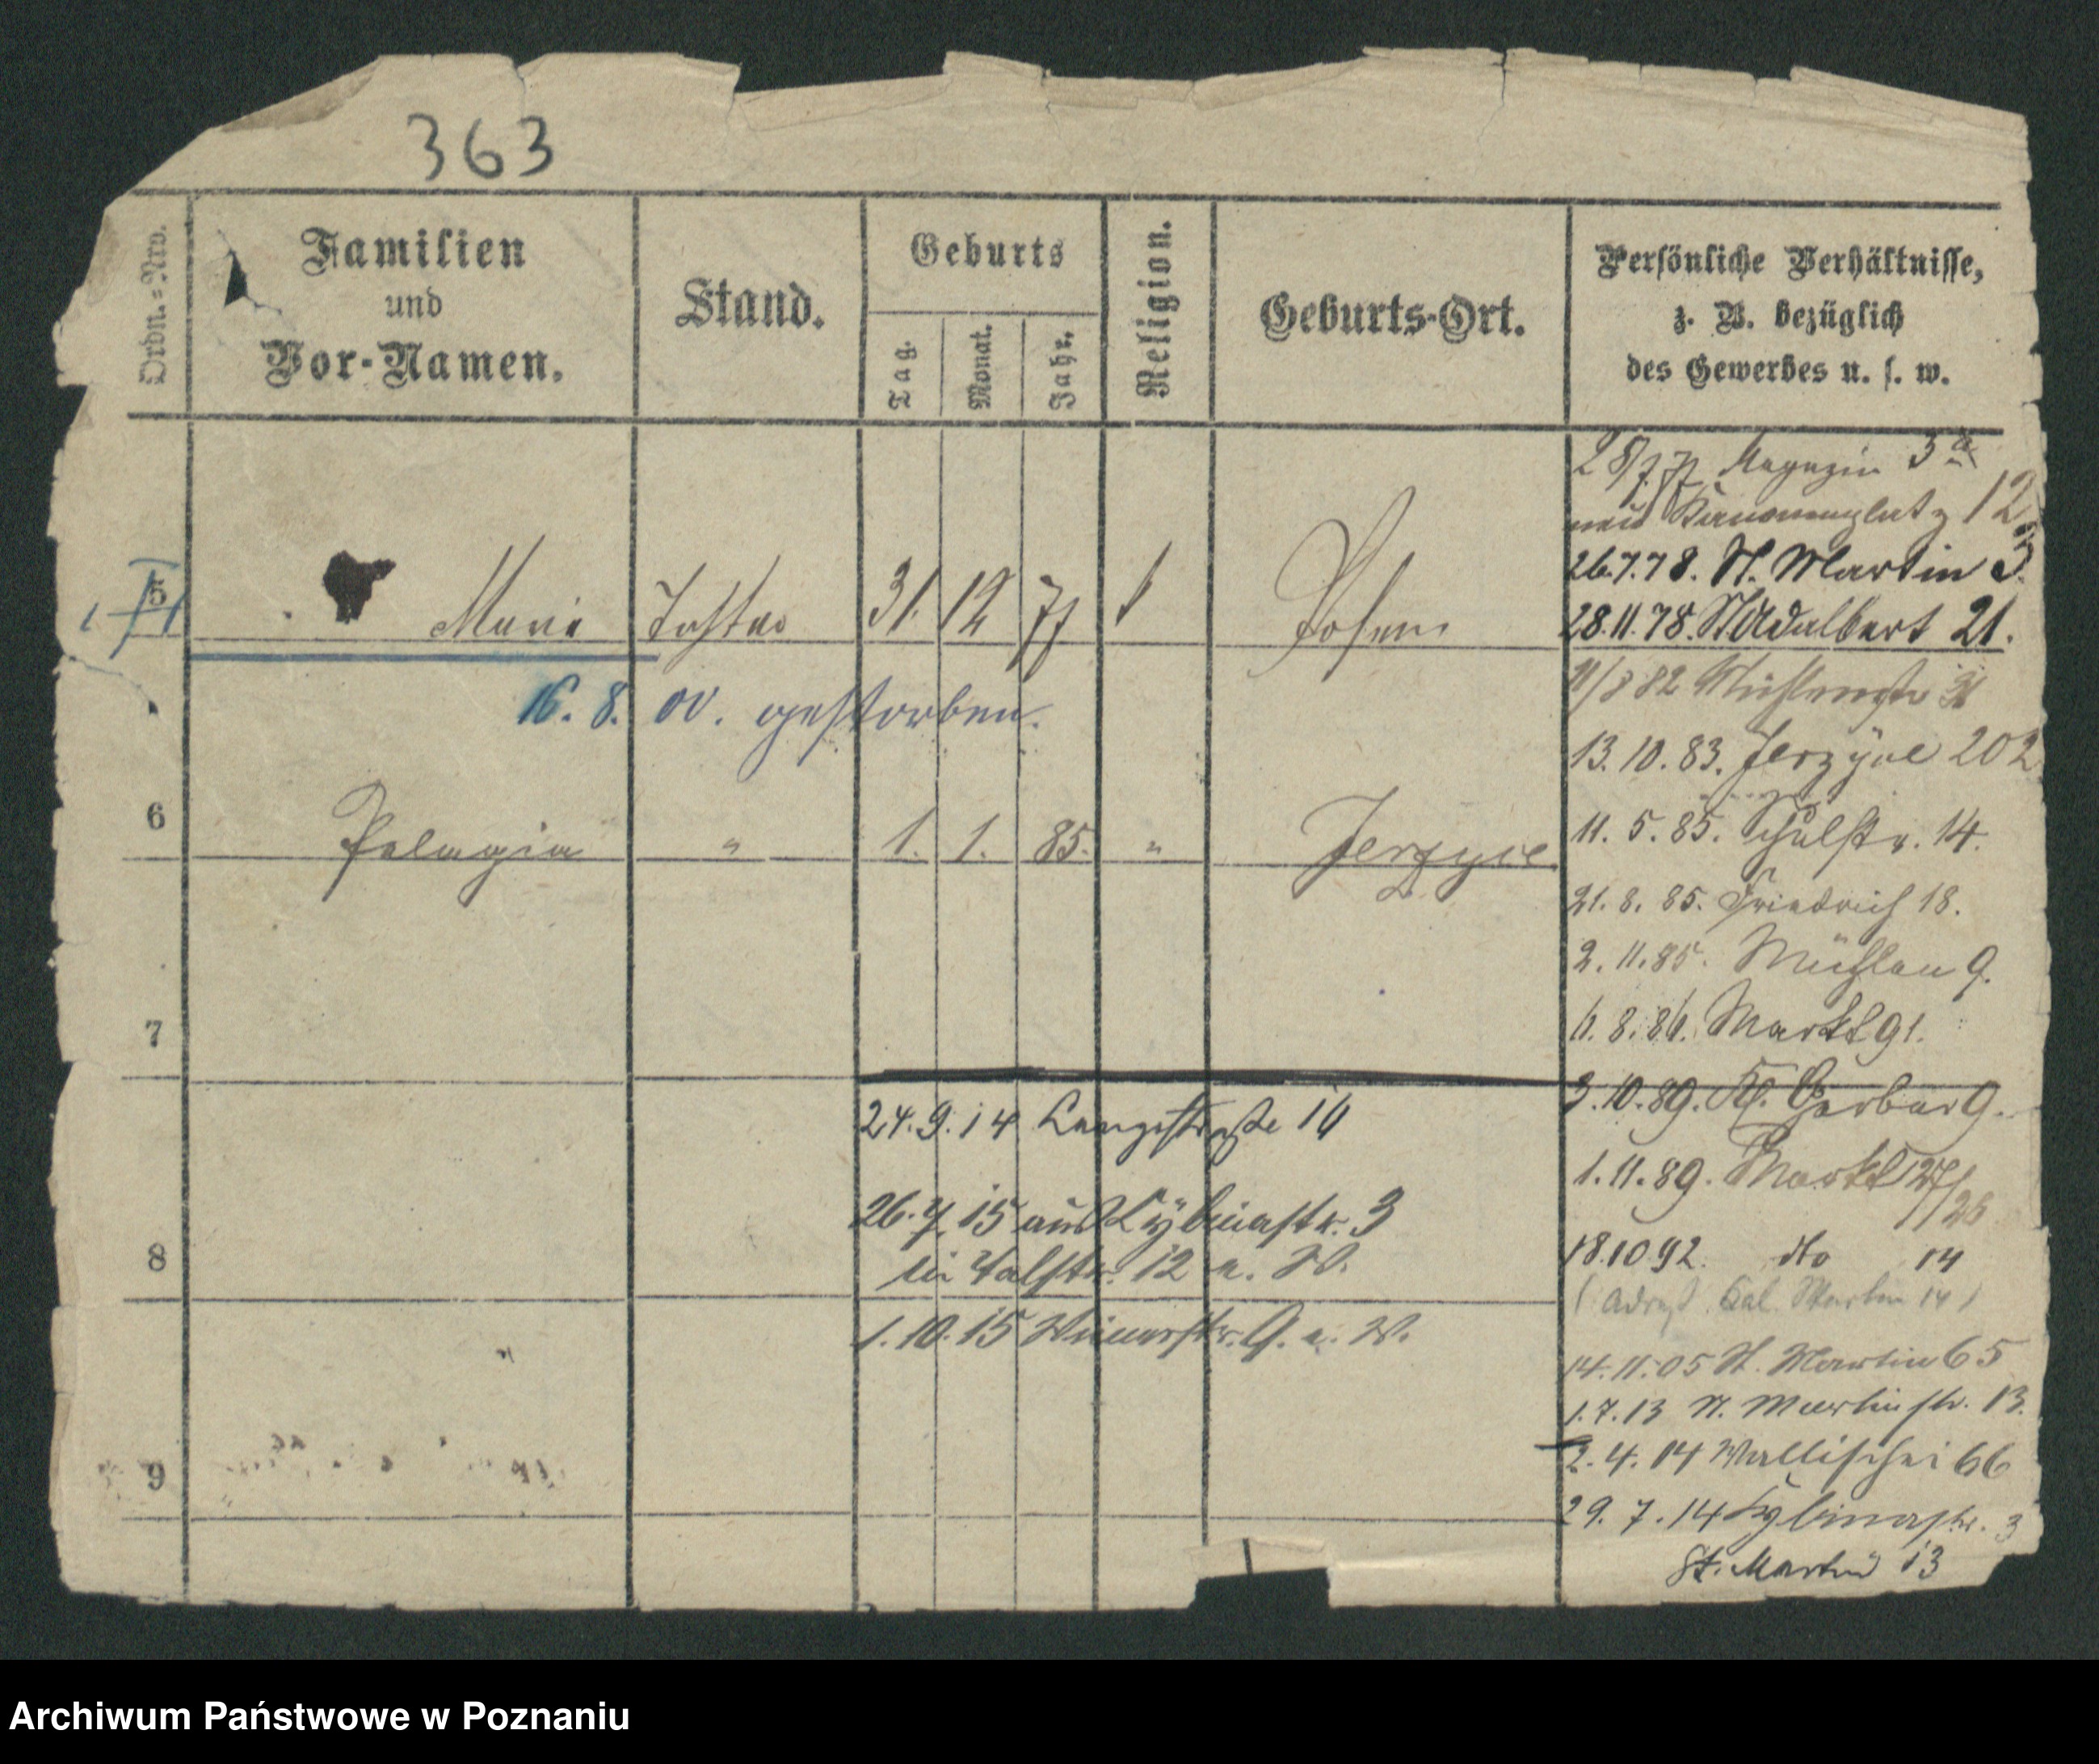 363
Ordn.=Nro.
Familien
und
Vor-Namen.
Stand.
Geburts
Tag.
Monat.
Jahr.
Religion.
Geburts-Ort.
Persönliche Verhältnisse,
z. B. bezüglich
des Gewerbes u. s. w.
5
Maria Tochter 31. 12 77 Posen
16. 8. 00. gestorben.
6 Pelagia " 1. 1. 85. " Jerzyce
7
8
9
24. 9. 14 Langestraße 16
26. 7. 15 aus Cybinastr. 3
in Talstr. 12 u. W.
1. 10. 15 9. u. W.
Magazin 3a
12
26.7.78. St. Martin 3.
28.11.78. St Adalbert 21.
11/8 82 Mühlenstr
13.10.83. Jerzyce 202
11. 5. 85. Schulstr. 14.
21. 8. 85. Friedrich 18.
2. 11. 85. Mühlen 9.
8. Markt 91.
3.10.89. Kl. Gerber 9.
1. 11. 89. Markt 27/28
18.10 92. dto 14
( St. Martin 14 )
14. 11. 05 St. Martin 65
1. 7. 13 St. Martinstr. 13.
2. 4. 14 Wallischei 66
29. 7. 14 Cybinastr. 3
St. Martin 13
Archiwum Państwowe w Poznaniu